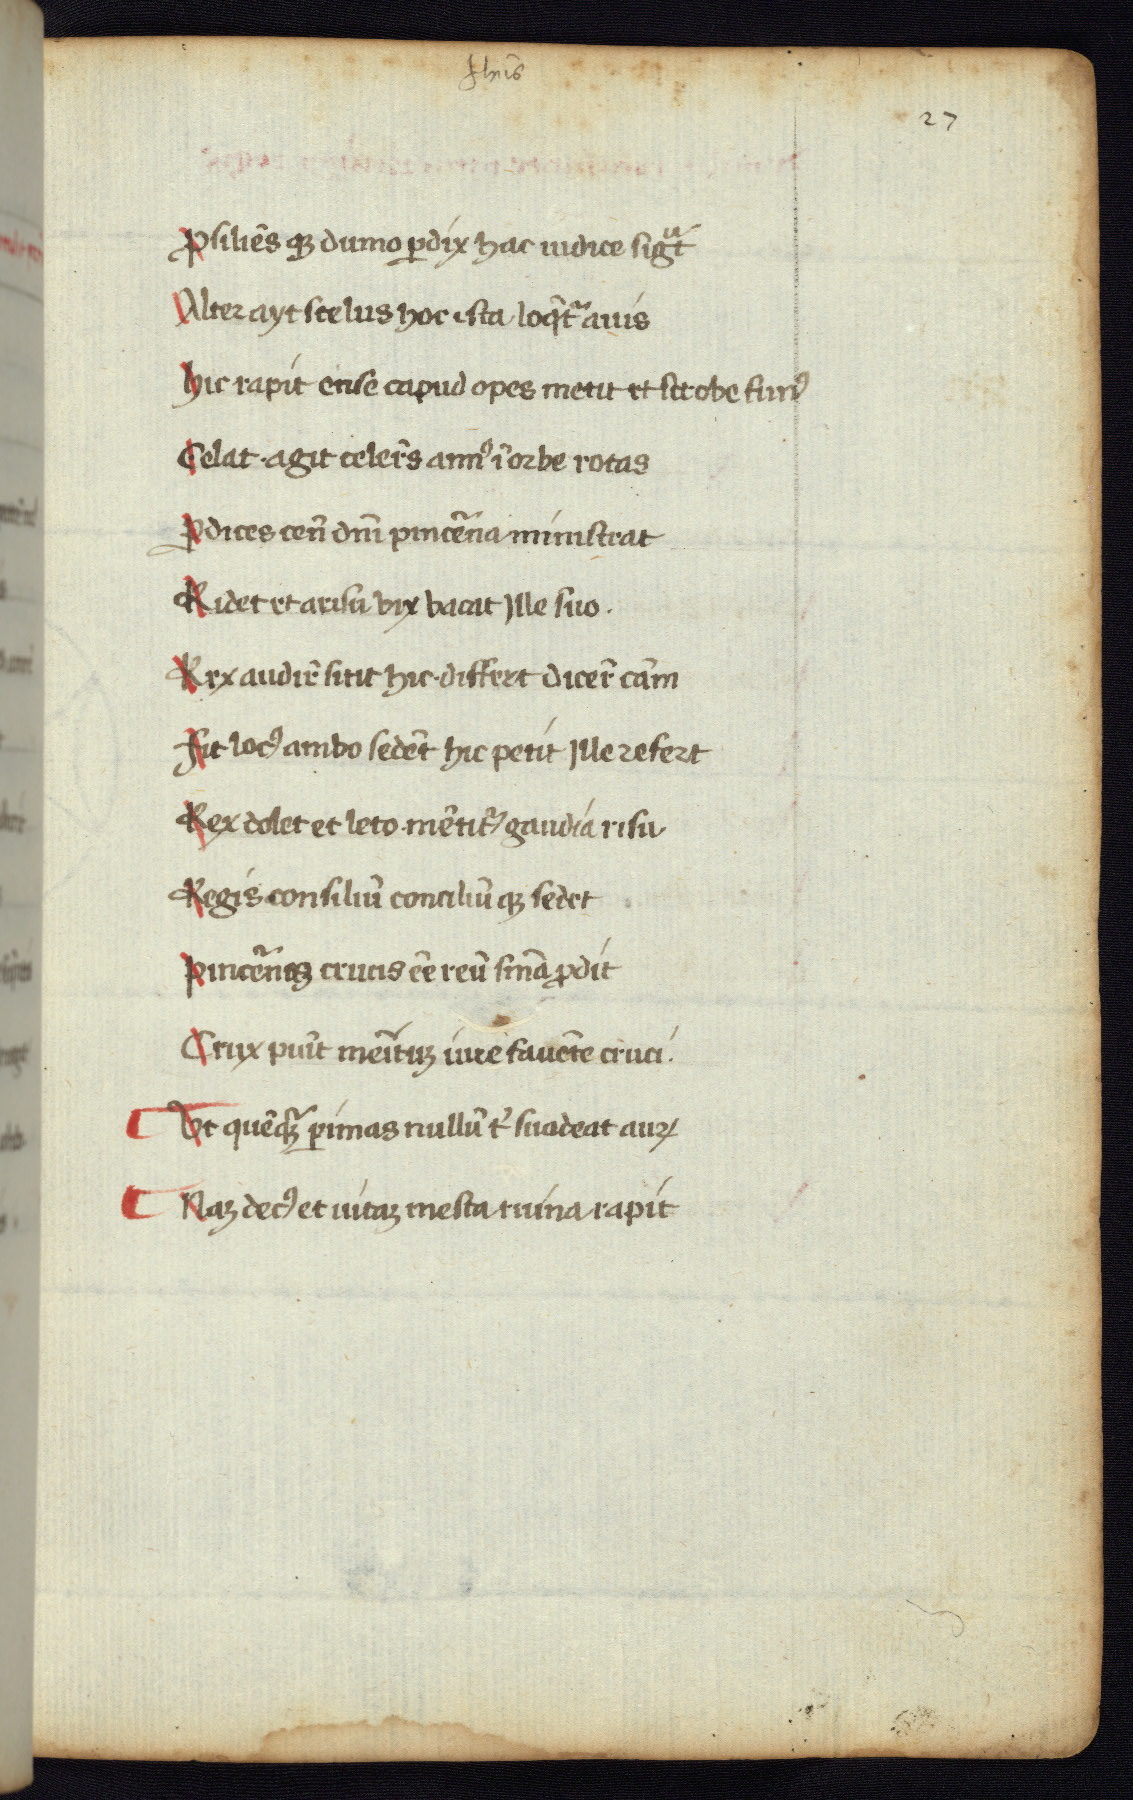 27
ꝓsiliēs qꝫ dumo ꝑdix hac iudice sigͣt
Alter ayt scelus hoc ista loq̄t᷑ auis
hic rapit ense capud opes metit et scrobe funꝰ
Celat · agit celer̄s annꝰ ī orbe rotas
ꝑdices cen̄ dn̄i pincēna ministrat
Ridet et a risu vix vacat Jlle suo ·
Rex audir̄ sitit hic · differt dicer̄ cām
Fit locꝰ ambo sedēt hic petit Jlle refert
Rex dolet et leto mētit᷑ gaudia risu
Regis consiliū conciliū qꝫ sedet
Pincēnāꝫ crucis ēē reū sn̄ia ꝓdit
Crux puīt meītuꝫ iure fauēte cruci .
Vt quēqꝫ ꝑimas nullū t᷑ suadeat auꝝ
Naꝫ decꝰ et uitaꝫ mesta ruina rapit